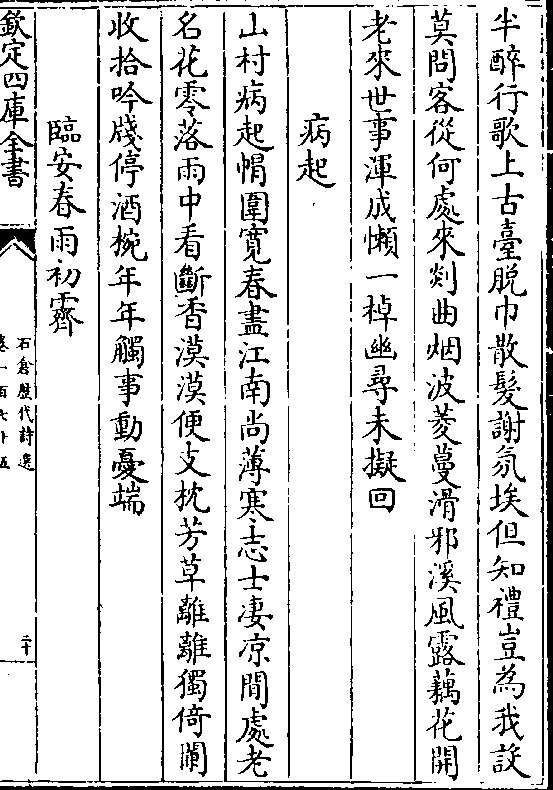 半醉行歌上古臺脱巾散髮謝氛埃但知禮豈為我設
莫問客從何處來剡曲烟波菱蔓滑邪溪風露藕花開
老來世事渾成懶一棹幽尋未擬回
病起
山村病起㡌圍寛春盡江南尚薄寒志士凄凉閒處老
名花零落雨中看斷香漠漠便支枕芳草離離獨倚闌
收拾吟牋停酒椀年年觸事動憂端
臨安春雨初霽
欽定四庫全書
石倉歴代詩選
卷一百六十五
二十